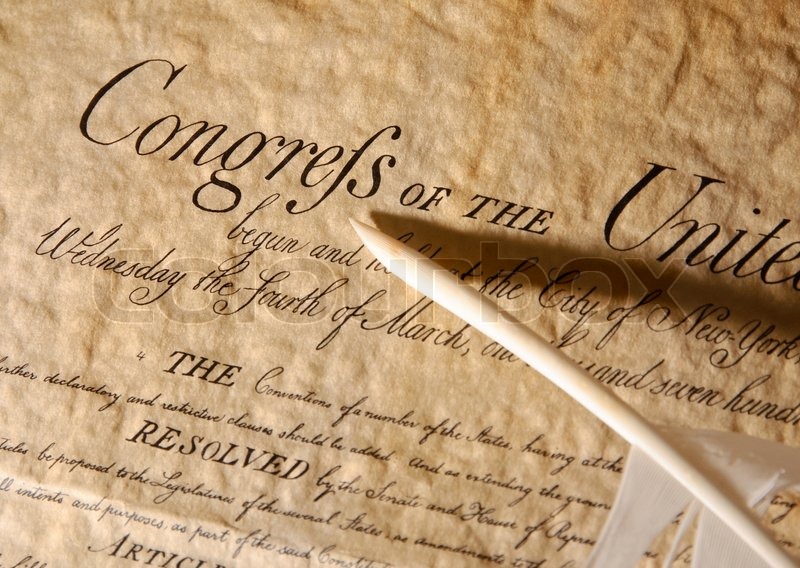 Congreſs OF THE United
begun and held at the City of New-York
Wednesday the Fourth of March, one thousand seven hundr
THE Conventions of a number of the States, having at the
further declaratory and restrictive clauses should be added And as extending the groun
RESOLVED by the Senate and House of Repres
ticles be proposed to the Legislatures of the several States, as amendments to the
ll intents and purposes, as part of the said Constitut
ARTICLE
colourbox